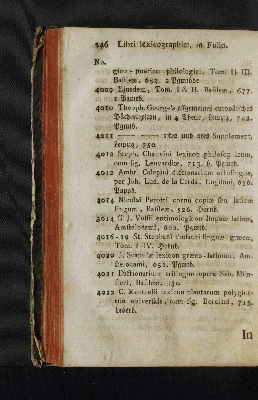 246 Libri lexicographici, in Folio.
No.
gico-poetico philologici, Tom. II III.
Basileæ, 693. 2 Pgmbde
4009 Ejusdem, Tom. I & II. Basileæ, 677.
1 Pgmb.
4010 Theoph. Georgi's allgemeines europäisches
Bücherlexicon, in 4 Theile, Leipzig, 742.
Pgmb.
4011 1stes und 2tes Supplement,
Leipzig, 750.
4012 Steph. Chauvini lexicon philosophicum,
cum fig. Leovardiæ, 713. h. Pgmb.
4013 Ambr. Calepini dictionarium octolingue,
per Joh. Lud. de la Cerda, Lugduni, 656.
Pappb.
4014 Nicolai Perotti cornu copiæ seu latinæ
linguæ, Basileæ, 526. Hornb.
4015 G. J. Vossii etymologicon linguæ latinæ,
Amstelodami, 662. Pgmb.
4016-19 St. Stephani thesauri linguæ græcæ,
Tom. I-IV. Hornb.
4020 J. Scapulæ lexicon græco-latinum, Amstelodami, 652. Pgmb.
4021 Dictionarium trilingue opera Seb. Münsteri, Basileæ, 530.
4022 C. Mentzelii lexicon plantarum polyglotton universale, cum fig. Berolini, 715.
Lederb.
In